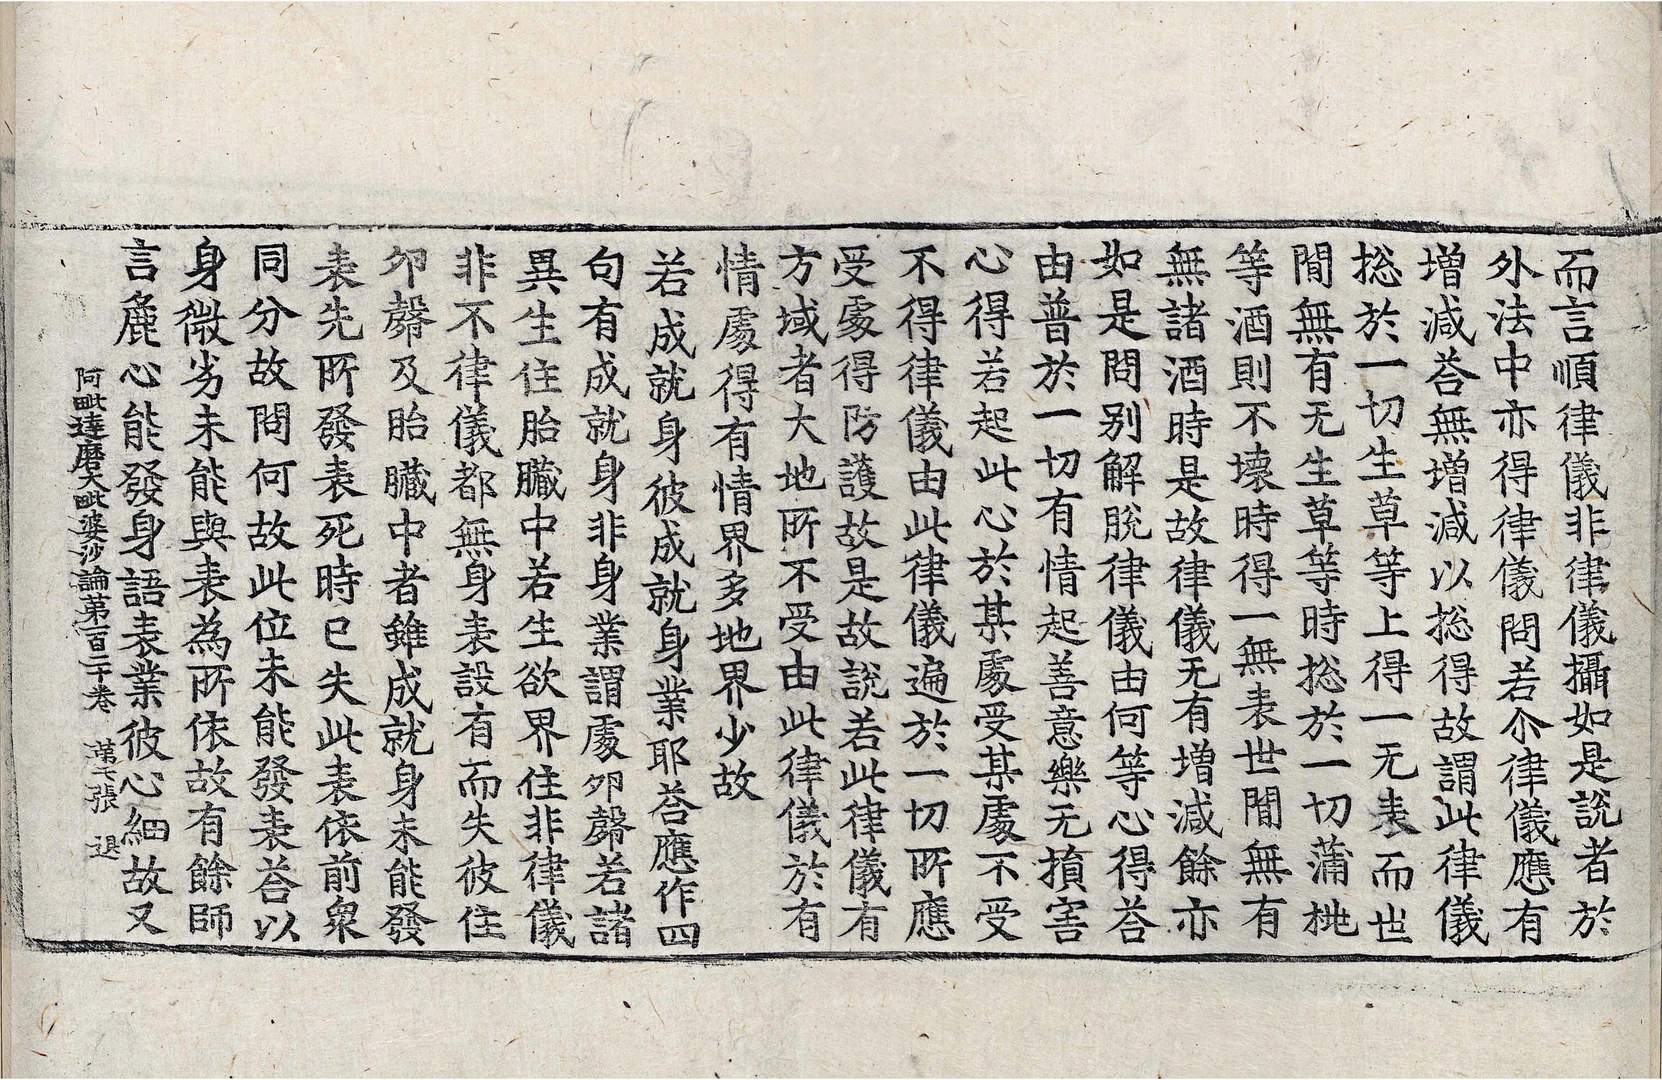 而言順律儀非律儀攝如是說者於
外法中亦得律儀問若尒律儀應有
增減荅無增減以捴得故謂此律儀
捴於一切生草等上得一无表而世
間無有无生草等時捴於一切蒲桃
等酒則不壞時得一無表世間無有
無諸酒時是故律儀无有增減餘亦
如是問別解脫律儀由何等心得荅
由普於一切有情起善意樂无損害
心得若起此心於某處受某處不受
不得律儀由此律儀遍於一切所應
受處得防護故是故說若此律儀有
方域者大地所不受由此律儀於有
情處得有情界多地界少故
若成就身彼成就身業耶荅應作四
句有成就身非身業謂處卵㲉若諸
異生住胎臟中若生欲界住非律儀
非不律儀都無身表設有而失彼住
卵㲉及胎臟中者雖成就身未能發
表先所發表死時已失此表依前衆
同分故問何故此位未能發表荅以
身微劣未能與表為所依故有餘師
言麁心能發身語表業彼心細故又
阿毗達磨大毗婆沙論第百二十卷 第七張 退